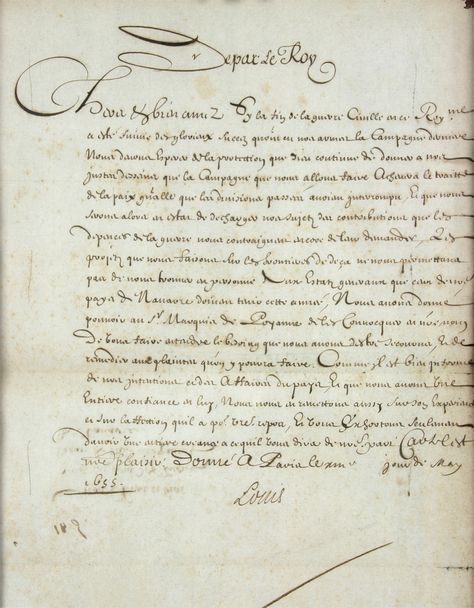 De par Le Roy
Chers & bien amez Sy la fin de la guerre Civille en ce Royme
a esté suivie des glorieux succez qu'ont eu nos armes la Campagne derniere
Nous devons Esperer de la protection que dieu continue de donner a nos
justes desseins que la Campagne que nous allons faire Achevera le traitté
de la paix qu'elle que les divisions passées avoient interrompu Et que nous
serons alors en estat de descharger nos sujets des contributions que les
depences de la guerre nous contraignent encore de leur demander, Les
projets que nous faisons sur les frontieres de deça ne nous permettans
pas de nous trouver en personne Aux Estats generaux que ceux de nre
pays de Navarre doivent tenir cette année, Nous avons donné
pouvoir au Sr. Marquis de Poyanne de les Convocquer en nre nom
De vous faire entendre le besoing que nous avons destre secourus Et de
remedier aux plaintes qu'on y pourra faire. Comme il est bien informé
de nos intentions et des Affaires du pays Et que nous avons une
Entiere confiance en luy, Nous nous en remettons aussy sur son Experience
et sur l'affection qu'il a pour nre repos, Et vous Exhortons seulement
d'avoir une entiere creance a ce qu'il vous dira de nre part Car tel est
nre plaisir Donné A Paris le jour de May
1655.
Louis